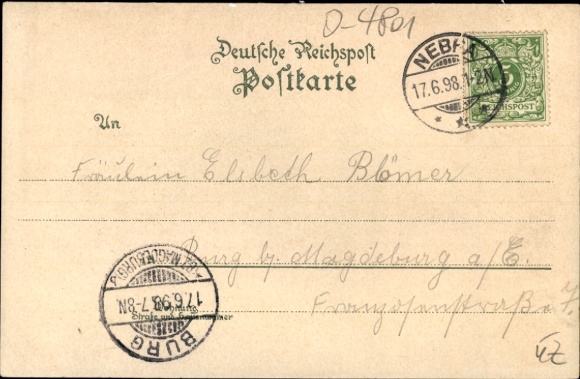 D-4801
Deutsche Reichspost
Postkarte
NEBRA
17.6.98.1-2N.
REICHSPOST
An
Fräulein Elsbeth Blömer
Burg by Magdeburg a/E.
Franzosenstraße 7.
BURG
(BZ. MAGDEBURG)
17.6.98.7-8N.
Wohnung
Straße und Hausnummer